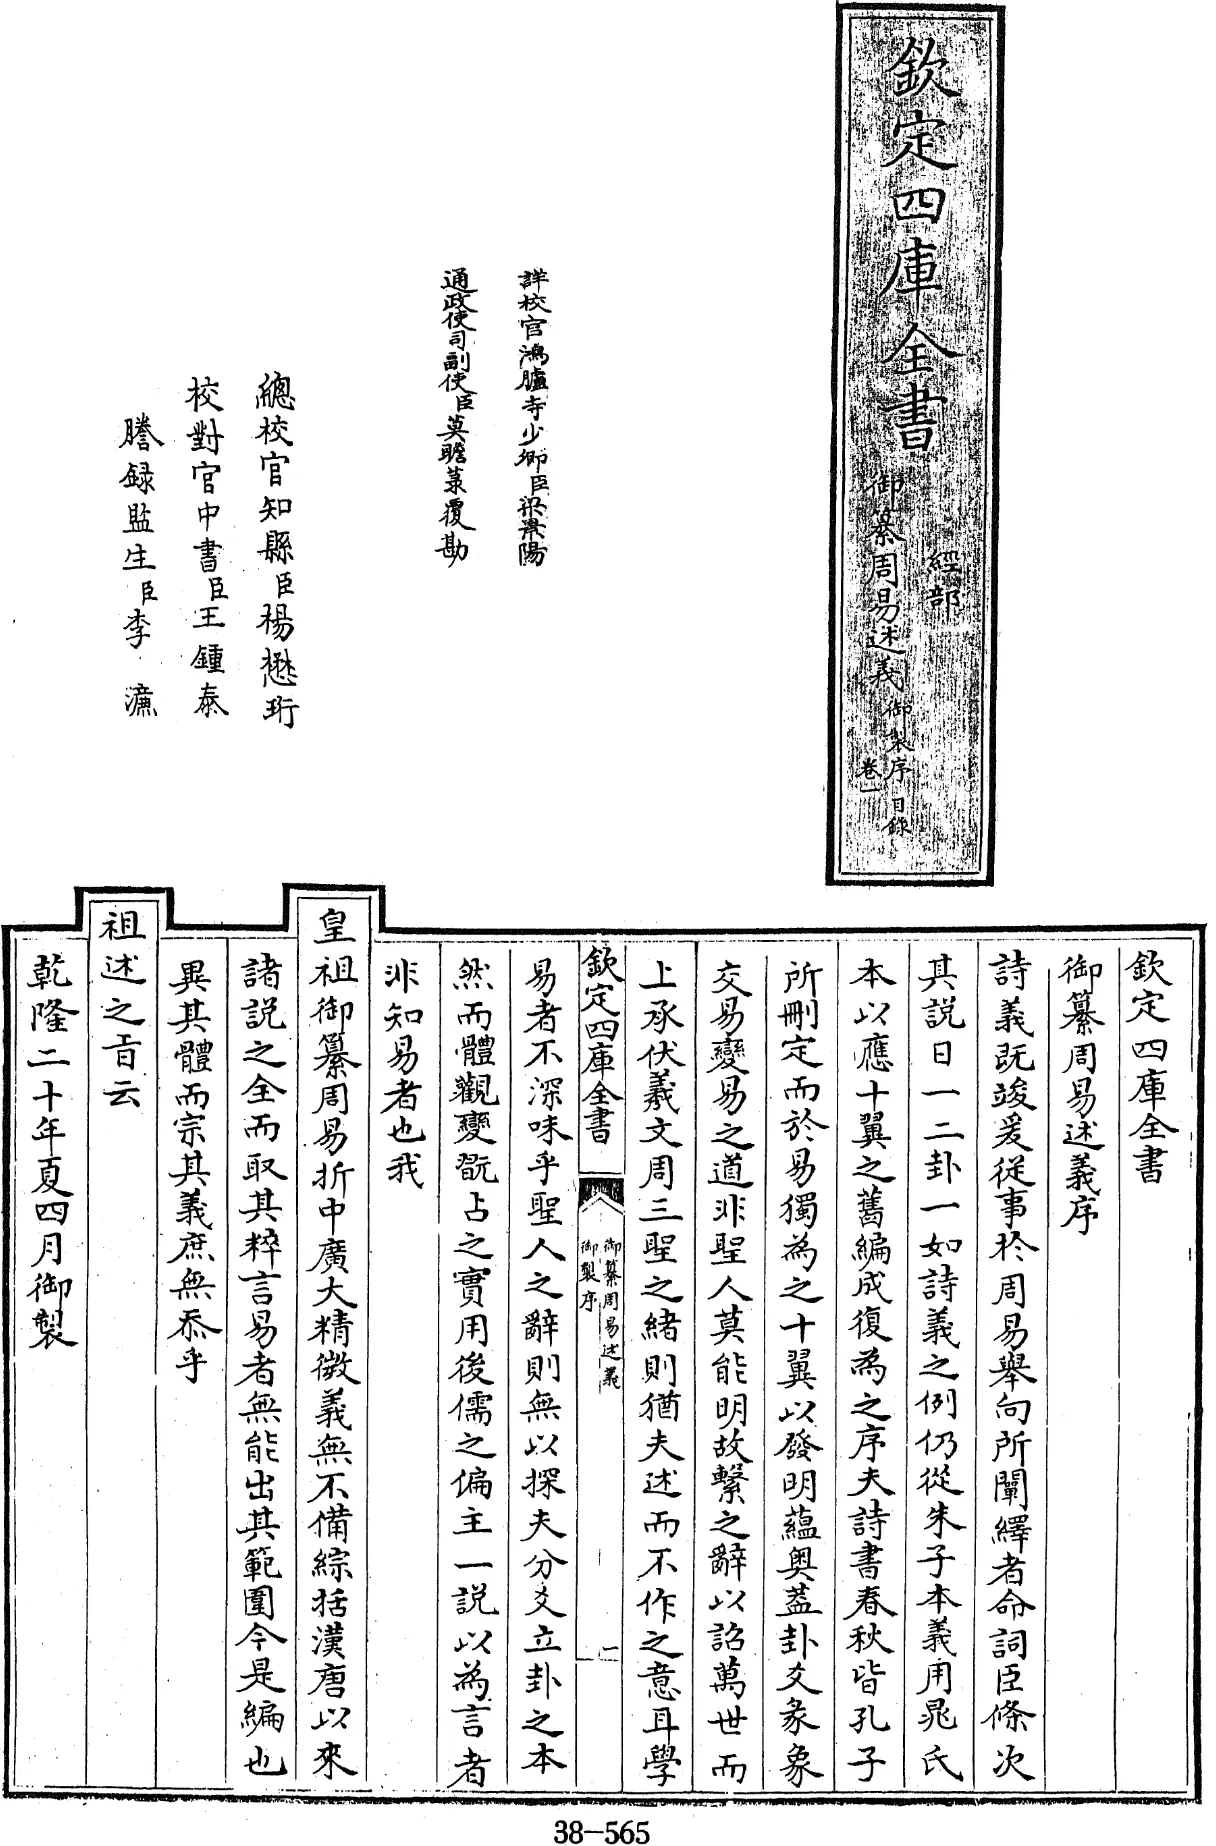 欽定四庫全書
經部
御纂周易述義
御製序 目錄
卷一
詳校官鴻臚寺少卿臣梁景陽
通政使司副使臣莫瞻菉覆勘
總校官知縣臣楊懋珩
校對官中書臣王鍾泰
謄録監生臣李 濂
欽定四庫全書
御纂周易述義序
詩義既竣爰從事於周易舉向所闡繹者命詞臣條次
其説日一二卦一如詩義之例仍從朱子本義用晁氏
本以應十翼之舊編成復為之序夫詩書春秋皆孔子
所刪定而於易獨為之十翼以發明蘊奥葢卦爻彖象
交易變易之道非聖人莫能明故繫之辭以詔萬世而
上承伏羲文周三聖之緒則猶夫述而不作之意耳學
欽定四庫全書
御纂周易述義
御製序
一
易者不深味乎聖人之辭則無以探夫分爻立卦之本
然而體觀變翫占之實用後儒之偏主一説以為言者
非知易者也我
皇祖御纂周易折中廣大精微義無不備綜括漢唐以來
諸説之全而取其粹言易者無能出其範圍今是編也
異其體而宗其義庶無忝乎
祖述之㫖云
乾隆二十年夏四月御製
38-565